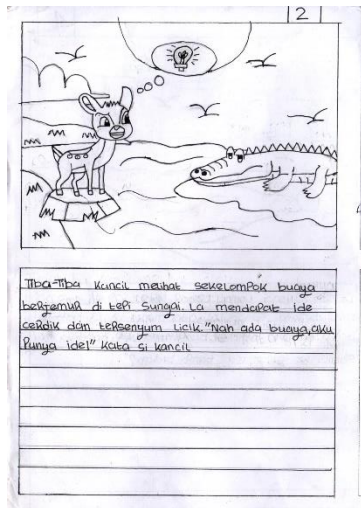 2
Tiba-Tiba kancil melihat sekelompok buaya
berjemur di tepi sungai. la mendapat ide
cerdik dan tersenyum licik."Nah ada buaya,aku
Punya ide!" kata si kancil